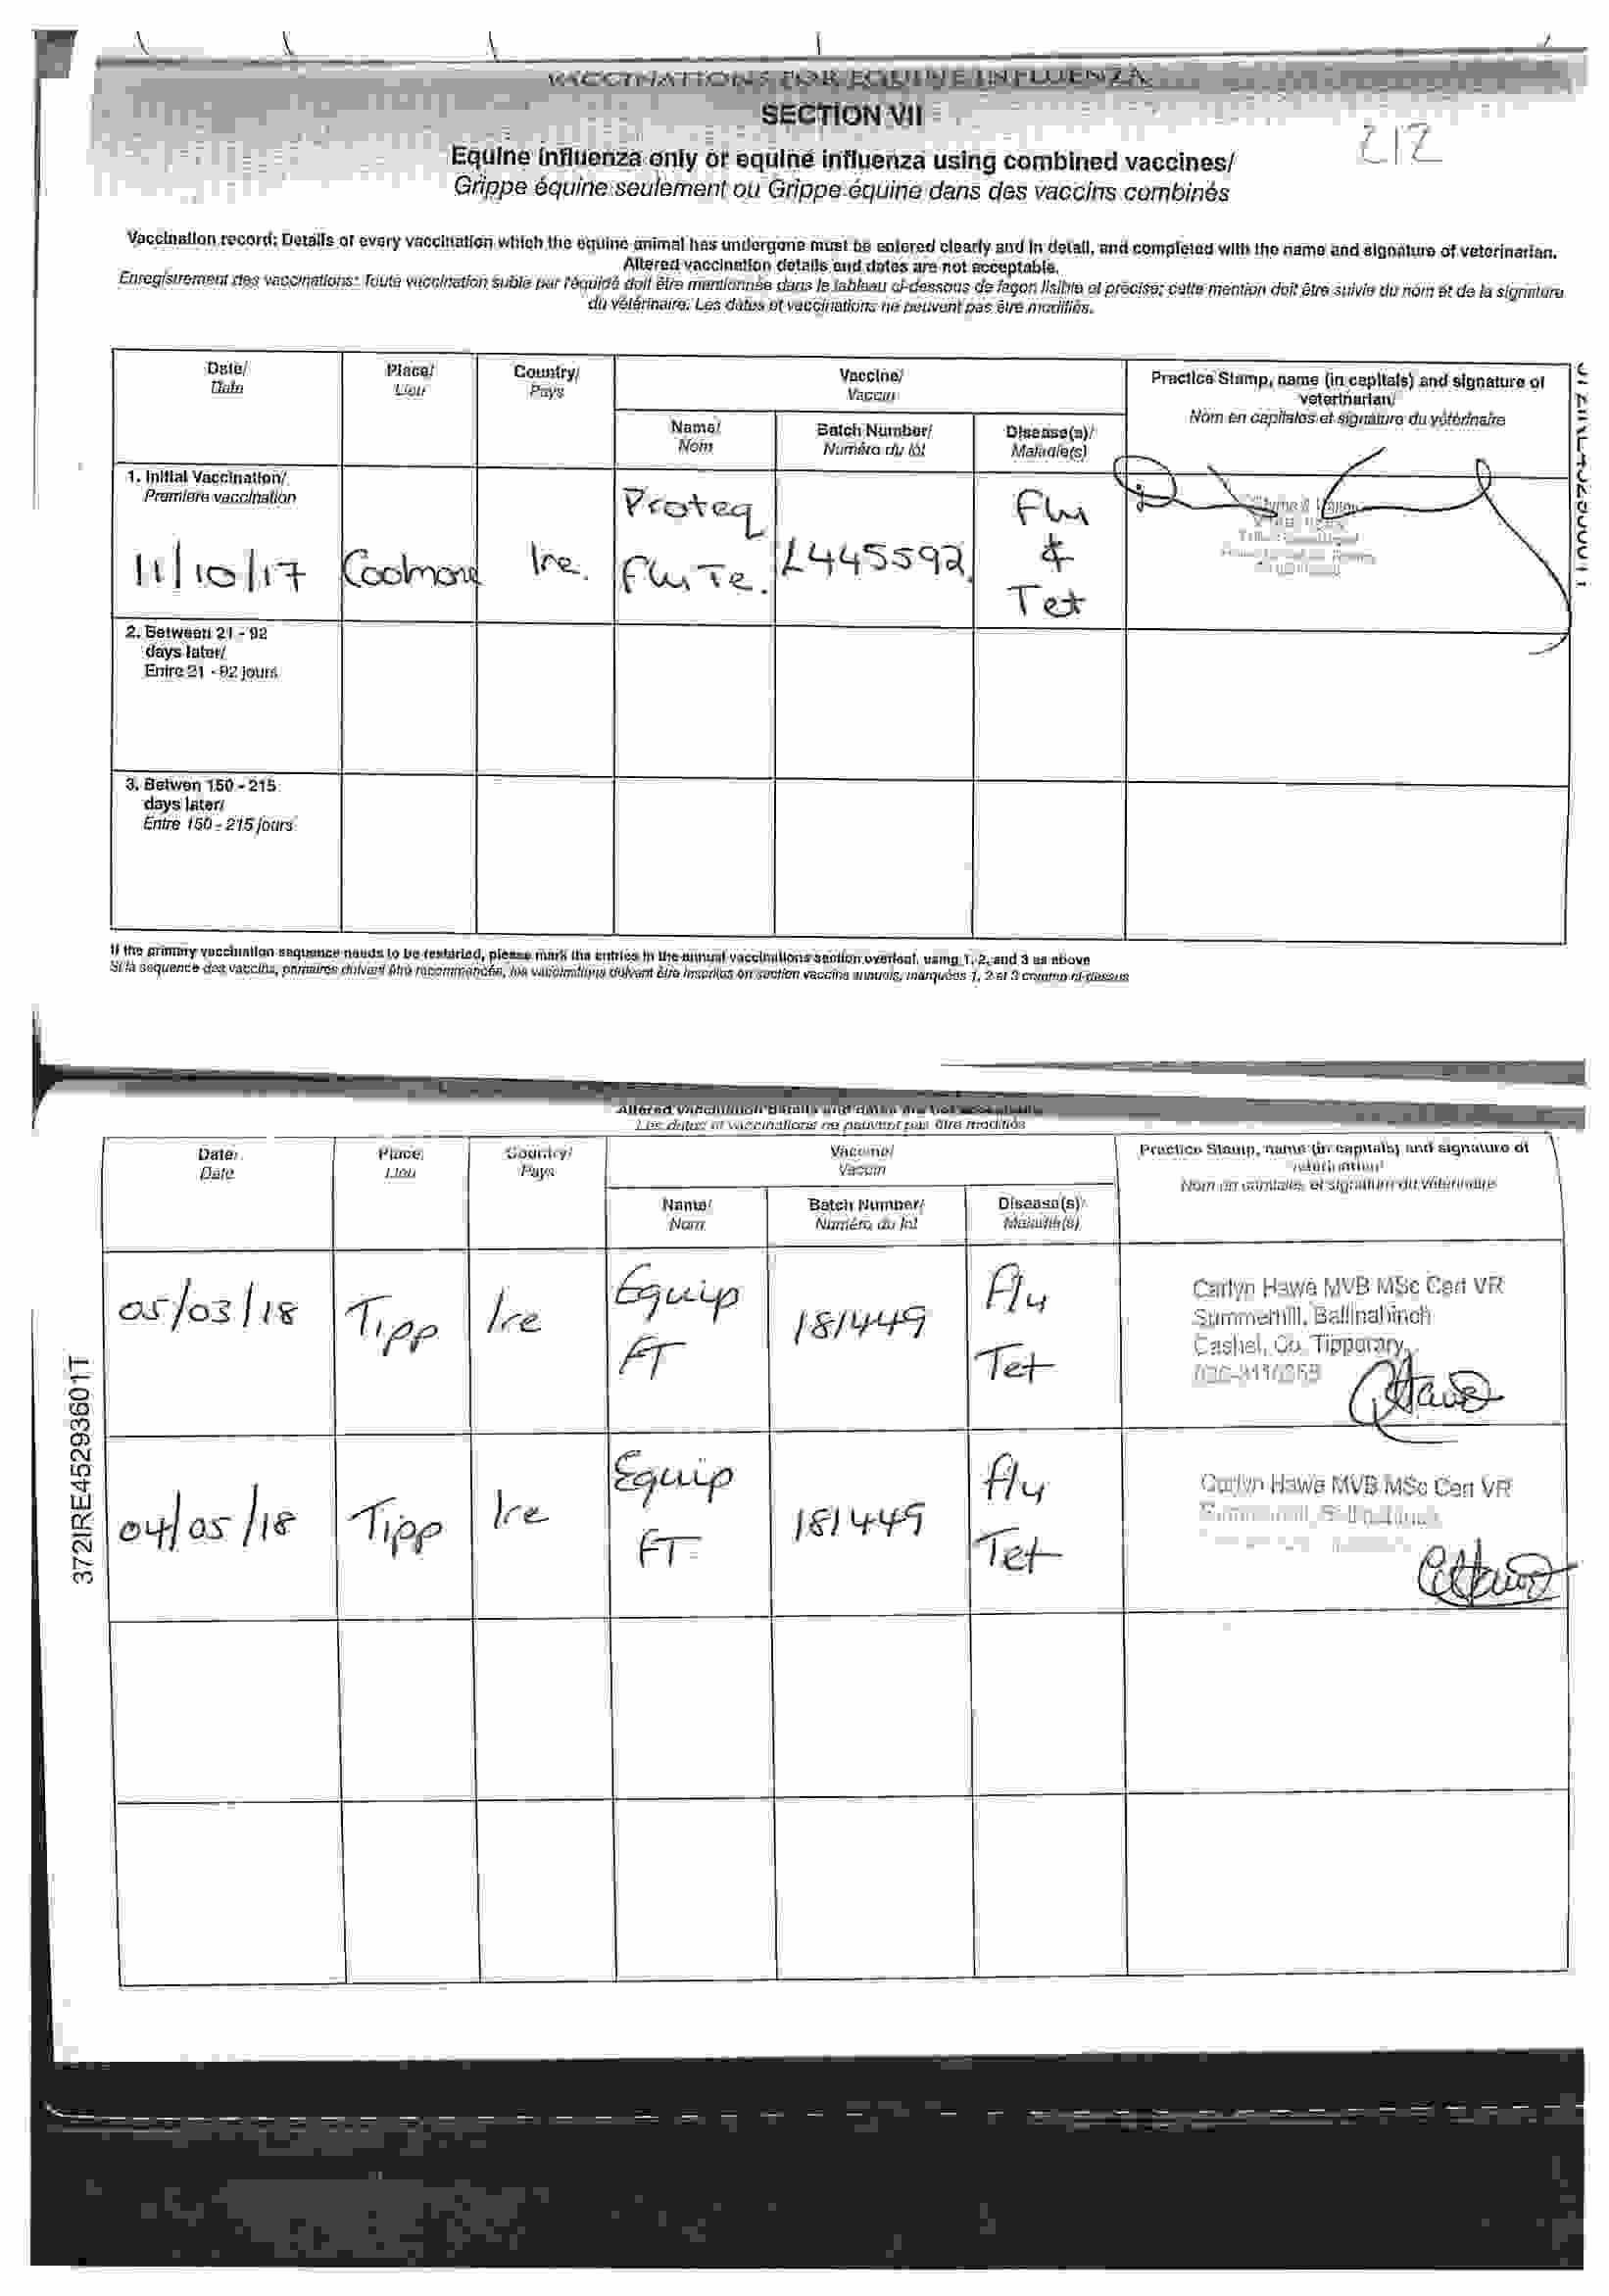 VACCINATIONS FOR EQUINE INFLUENZA
SECTION VII
212
Equine influenza only or equine influenza using combined vaccines/
Grippe équine seulement ou Grippe équine dans des vaccins combinés
Vaccination record: Details of every vaccination which the equine animal has undergone must be entered clearly and in detail, and completed with the name and signature of veterinarian.
Altered vaccination details and dates are not acceptable.
Enregistrement des vaccinations: Toute vaccination subie par l'équidé doit être mentionnée dans le tableau ci-dessous de façon lisible et précise; cette mention doit être suivie du nom et de la signature
du vétérinaire. Les dates et vaccinations ne peuvent pas être modifiés.
Date/
Date
Place/
Lieu
Country/
Pays
Vaccine/
Vaccin
Practice Stamp, name (in capitals) and signature of
veterinarian/
Nom en capitales et signature du vétérinaire
Name/
Nom
Batch Number/
Numéro du lot
Disease(s)/
Maladie(s)
1. Initial Vaccination/
Premiere vaccination
11/10/17
Coolmore
Ire.
Proteq
Flu Te.
L445592
Flu
&
Tet
2. Between 21 - 92
days later/
Entre 21 - 92 jours
3. Betwen 150 - 215
days later/
Entre 150 - 215 jours
If the primary vaccination sequence needs to be restarted, please mark the entries in the annual vaccinations section overleaf, using 1, 2, and 3 as above
Si la sequence des vaccins, primaires doivent être recommencée, les vaccinations doivent être inscrites en section vaccins annuels, marquées 1, 2 et 3 comme ci-dessus
Altered vaccination details and dates are not acceptable
Les dates et vaccinations ne peuvent pas être modifiés
Date/
Date
Place/
Lieu
Country/
Pays
Vaccine/
Vaccin
Practice Stamp, name (in capitals) and signature of
veterinarian/
Nom en capitales et signature du vétérinaire
Name/
Nom
Batch Number/
Numéro du lot
Disease(s)/
Maladie(s)
05/03/18
Tipp
Ire
Equip
FT
181449
Flu
Tet
Carlyn Hawe MVB MSc Cert VR
Summerhill, Ballinahinch
Cashel, Co. Tipperary
CHawe
04/05/18
Tipp
Ire
Equip
FT
181449
Flu
Tet
Carlyn Hawe MVB MSc Cert VR
Summerhill, Ballinahinch
CHawe
372IRE45293601T